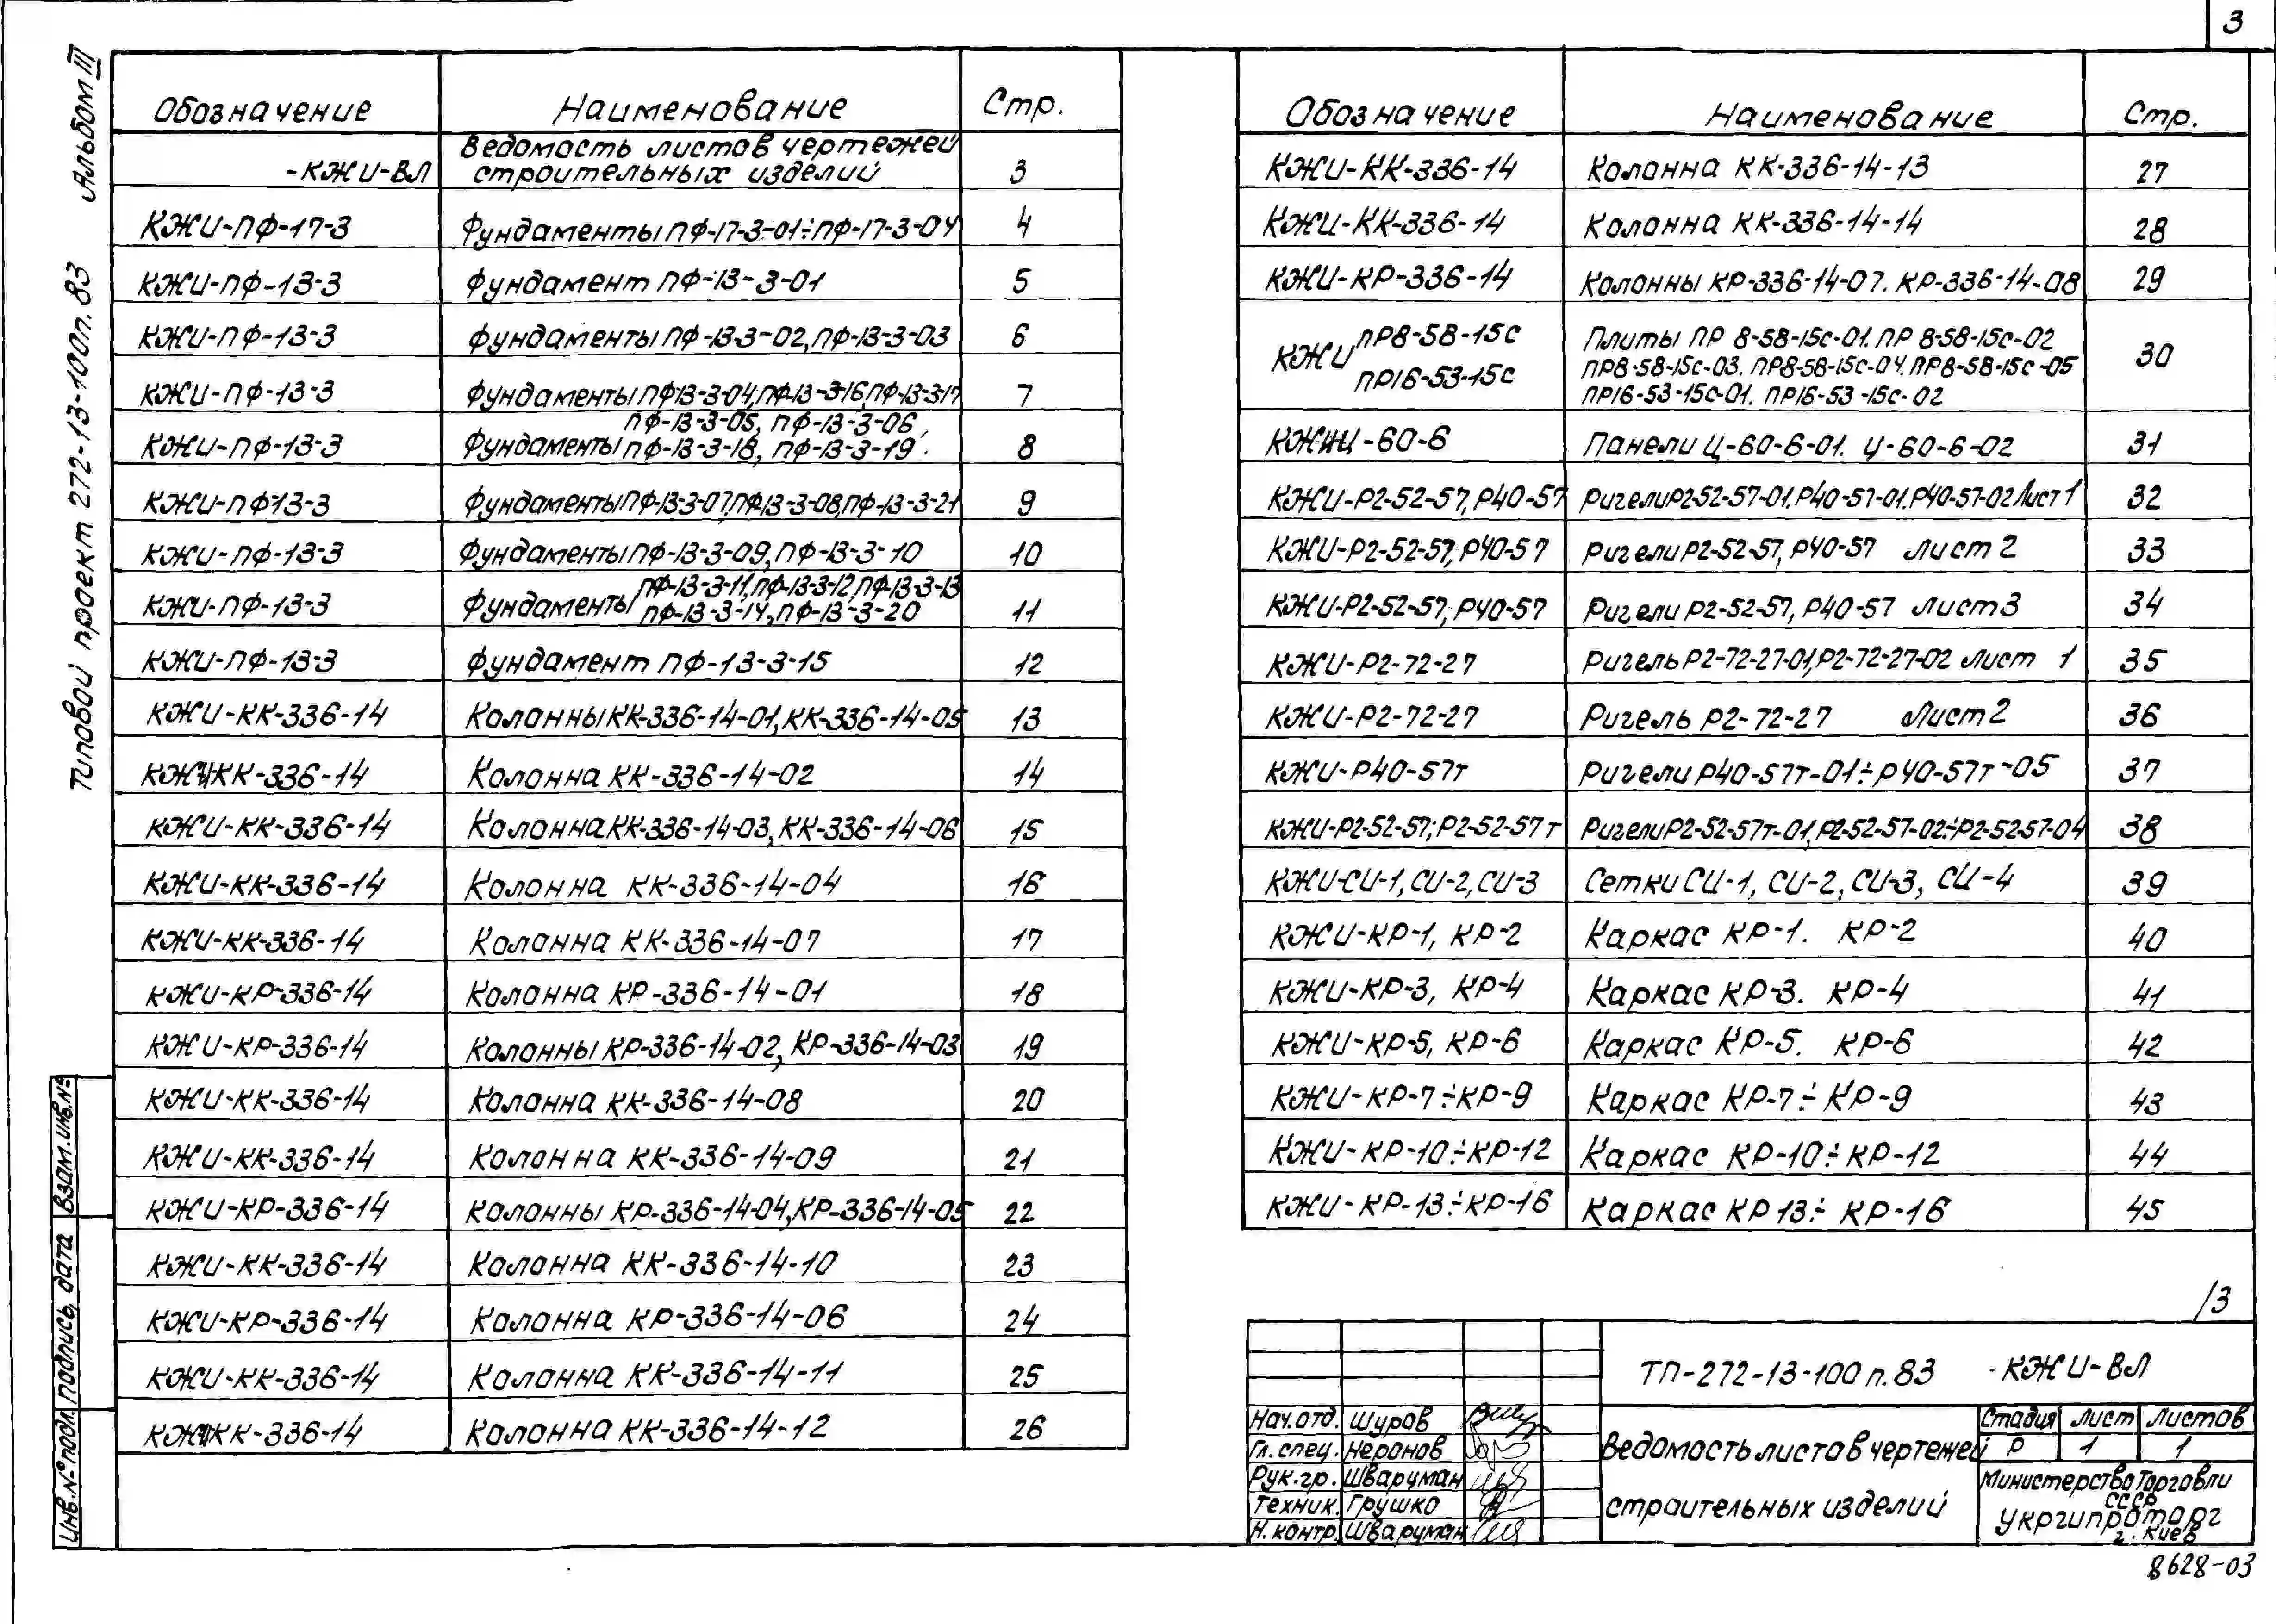 3
Альбом III
Типовой проект 272-13-100п.83
Обозначение Наименование Стр.
-КЖИ-ВЛ Ведомость листов чертежей
строительных изделий 3
КЖИ-ПФ-17-3 Фундаменты ПФ-17-3-01÷ПФ-17-3-04 4
КЖИ-ПФ-13-3 Фундамент ПФ-13-3-01 5
КЖИ-ПФ-13-3 Фундаменты ПФ-13-3-02, ПФ-13-3-03 6
КЖИ-ПФ-13-3 Фундаменты ПФ13-3-04, ПФ-13-3-16, ПФ-13-3-17 7
ПФ-13-3-05, ПФ-13-3-06,
КЖИ-ПФ-13-3 Фундаменты ПФ-13-3-18, ПФ-13-3-19. 8
КЖИ-ПФ-13-3 Фундаменты ПФ-13-3-07, ПФ-13-3-08, ПФ-13-3-21 9
КЖИ-ПФ-13-3 Фундаменты ПФ-13-3-09, ПФ-13-3-10 10
ПФ-13-3-11, ПФ-13-3-12, ПФ-13-3-13
КЖИ-ПФ-13-3 Фундаменты ПФ-13-3-14, ПФ-13-3-20 11
КЖИ-ПФ-13-3 Фундамент ПФ-13-3-15 12
КЖИ-КК-336-14 Колонны КК-336-14-01, КК-336-14-05 13
КЖИ-КК-336-14 Колонна КК-336-14-02 14
КЖИ-КК-336-14 Колонна КК-336-14-03, КК-336-14-06 15
КЖИ-КК-336-14 Колонна КК-336-14-04 16
КЖИ-КК-336-14 Колонна КК-336-14-07 17
КЖИ-КР-336-14 Колонна КР-336-14-01 18
КЖИ-КР-336-14 Колонны КР-336-14-02, КР-336-14-03 19
КЖИ-КК-336-14 Колонна КК-336-14-08 20
КЖИ-КК-336-14 Колонна КК-336-14-09 21
КЖИ-КР-336-14 Колонны КР-336-14-04, КР-336-14-05 22
КЖИ-КК-336-14 Колонна КК-336-14-10 23
КЖИ-КР-336-14 Колонна КР-336-14-06 24
КЖИ-КК-336-14 Колонна КК-336-14-11 25
КЖИ-КК-336-14 Колонна КК-336-14-12 26
Обозначение Наименование Стр.
КЖИ-КК-336-14 Колонна КК-336-14-13 27
КЖИ-КК-336-14 Колонна КК-336-14-14 28
КЖИ-КР-336-14 Колонны КР-336-14-07. КР-336-14-08 29
КЖИ ПР8-58-15с Плиты ПР 8-58-15с-01. ПР 8-58-15с-02
ПР8-58-15с-03. ПР8-58-15с-04. ПР8-58-15с-05 30
ПР16-53-15с ПР16-53-15с-01. ПР16-53-15с-02
КЖИ-Ц-60-6 Панели Ц-60-6-01. Ц-60-6-02 31
КЖИ-Р2-52-57, Р40-57 Ригели Р2-52-57-01. Р40-57-01. Р40-57-02 Лист 1 32
КЖИ-Р2-52-57, Р40-57 Ригели Р2-52-57, Р40-57 Лист 2 33
КЖИ-Р2-52-57, Р40-57 Ригели Р2-52-57, Р40-57 Лист 3 34
КЖИ-Р2-72-27 Ригель Р2-72-27-01, Р2-72-27-02 Лист 1 35
КЖИ-Р2-72-27 Ригель Р2-72-27 Лист 2 36
КЖИ-Р40-57т Ригели Р40-57т-01÷Р40-57т-05 37
КЖИ-Р2-52-57; Р2-52-57т Ригели Р2-52-57т-01, Р2-52-57-02÷Р2-52-57-04 38
КЖИ-СИ-1, СИ-2, СИ-3 Сетки СИ-1, СИ-2, СИ-3, СИ-4 39
КЖИ-КР-1, КР-2 Каркас КР-1. КР-2 40
КЖИ-КР-3, КР-4 Каркас КР-3. КР-4 41
КЖИ-КР-5, КР-6 Каркас КР-5. КР-6 42
КЖИ-КР-7÷КР-9 Каркас КР-7÷КР-9 43
КЖИ-КР-10÷КР-12 Каркас КР-10÷КР-12 44
КЖИ-КР-13÷КР-16 Каркас КР 13÷КР-16 45
/3
ТП-272-13-100п.83 -КЖИ-ВЛ
Нач.отд. Шуров
Гл.спец. Неронов
Рук.гр. Шварцман
Техник. Грушко
Н.контр. Шварцман
Ведомость листов чертежей
строительных изделий
Стадия Лист Листов
Р 1 1
Министерство Торговли
СССР
Укргипроторг
г. Киев
8628-03
Взам.инв.№
Подпись, дата
Инв.№ подл.